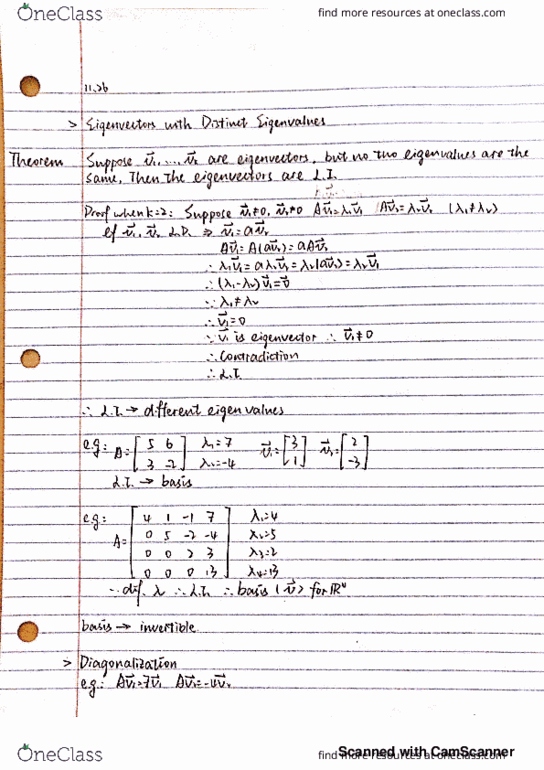 OneClass
find more resources at oneclass.com
11.26
> Eigenvectors with Distinct Eigenvalues
Theorem Suppose v⃗₁, ... v⃗ₖ are eigenvectors, but no two eigenvalues are the
same, Then the eigenvectors are L.I.
Proof when k=2: Suppose v⃗₁≠0, v⃗₂≠0 Av⃗₁=λ₁v⃗₁ Av⃗₂=λ₂v⃗₂ (λ₁≠λ₂)
if v⃗₁, v⃗₂ L.D. ⇒ v⃗₁=av⃗₂
Av⃗₁=A(av⃗₂)=aAv⃗₂
∴ λ₁v⃗₁=aλ₂v⃗₂=λ₂(av⃗₂)=λ₂v⃗₁
∴ (λ₁-λ₂)v⃗₁=0⃗
∵ λ₁≠λ₂
∴ v⃗₁=0
∵ v⃗₁ is eigenvector ∴ v⃗₁≠0
∴ Contradiction
∴ L.I.
∴ L.I. → different eigenvalues
e.g.: A= [5 6 λ₁=7 v⃗₁=[3 v⃗₂=[2
3 -2] λ₂=-4 1] -3]
L.I. → basis
e.g.: 4 1 -1 7 λ₁=4
A= 0 5 -2 -4 λ₂=5
0 0 2 3 λ₃=2
0 0 0 13 λ₄=13
∵ dif. λ ∴ L.I. ∴ basis (v⃗) for ℝ⁴
basis → invertible
> Diagonalization
e.g.: Av⃗₁=7v⃗₁ Av⃗₂=-4v⃗₂
OneClass
find more resources at oneclass.com
Scanned with CamScanner